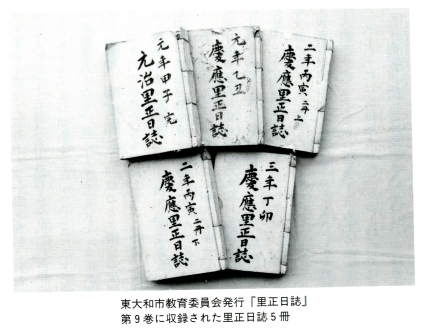 元年甲子 完
元治里正日誌
元年乙丑
慶應里正日誌
二年丙寅 二冊 上
慶應里正日誌
二年丙寅 二冊 下
慶應里正日誌
三年丁卯
慶應里正日誌
東大和市教育委員会発行『里正日誌』
第9巻に収録された里正日誌5冊